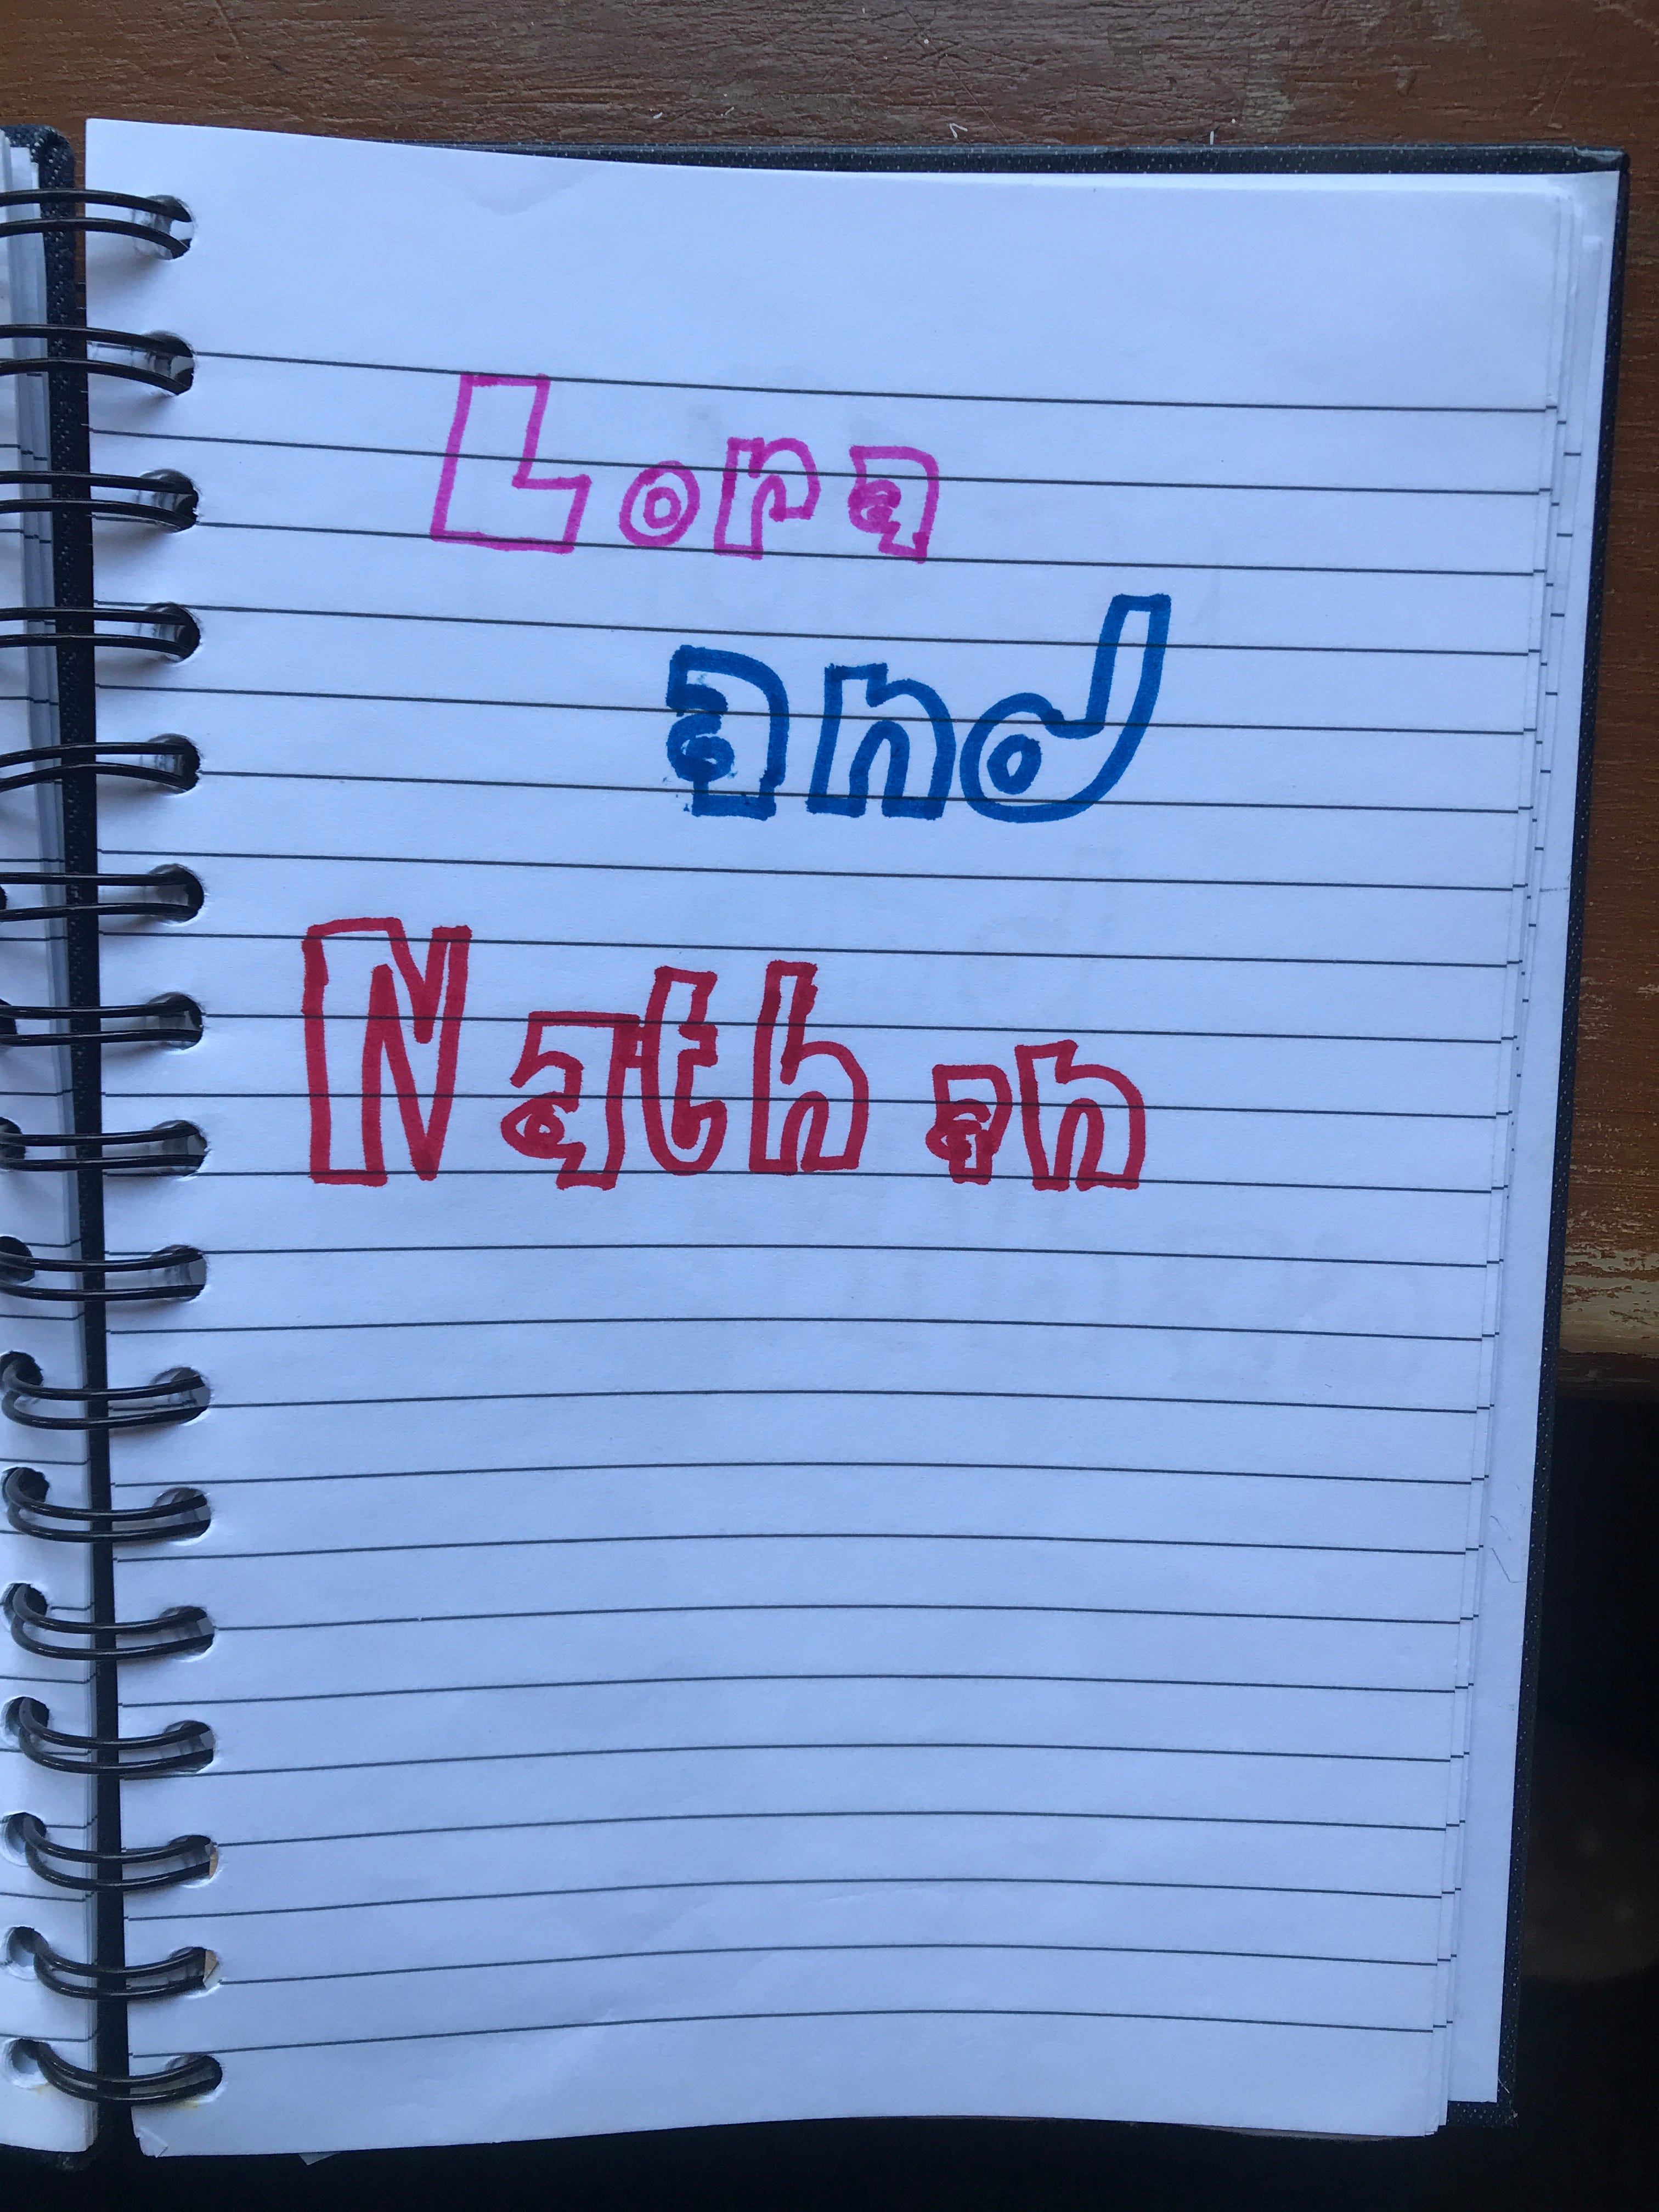 Lora
and
Nathan